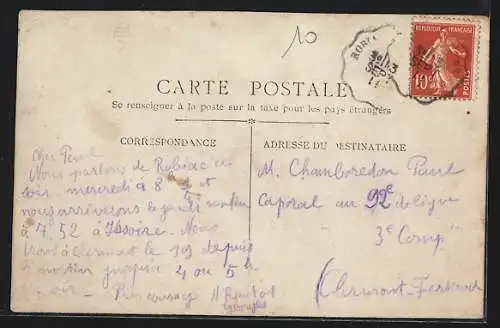 10
ROBI
13
SEPT
11
REPUBLIQUE FRANÇAISE
10
CARTE POSTALE
Se renseigner à la poste sur la taxe pour les pays étrangers
CORRESPONDANCE
Cher Paul
Nous partons de Robiac ce
soir mercredi à 8h et
nous arriverons le jeudi matin
à 4.52 à Issoire. Nous
à Clermont le 19 depuis
matin jusque 4 ou 5h
soir - Bon courage
Georges
ADRESSE DU DESTINATAIRE
M. Chamboredon Paul
Caporal au 92e de ligne
3e Comp
Clermont-Ferrand